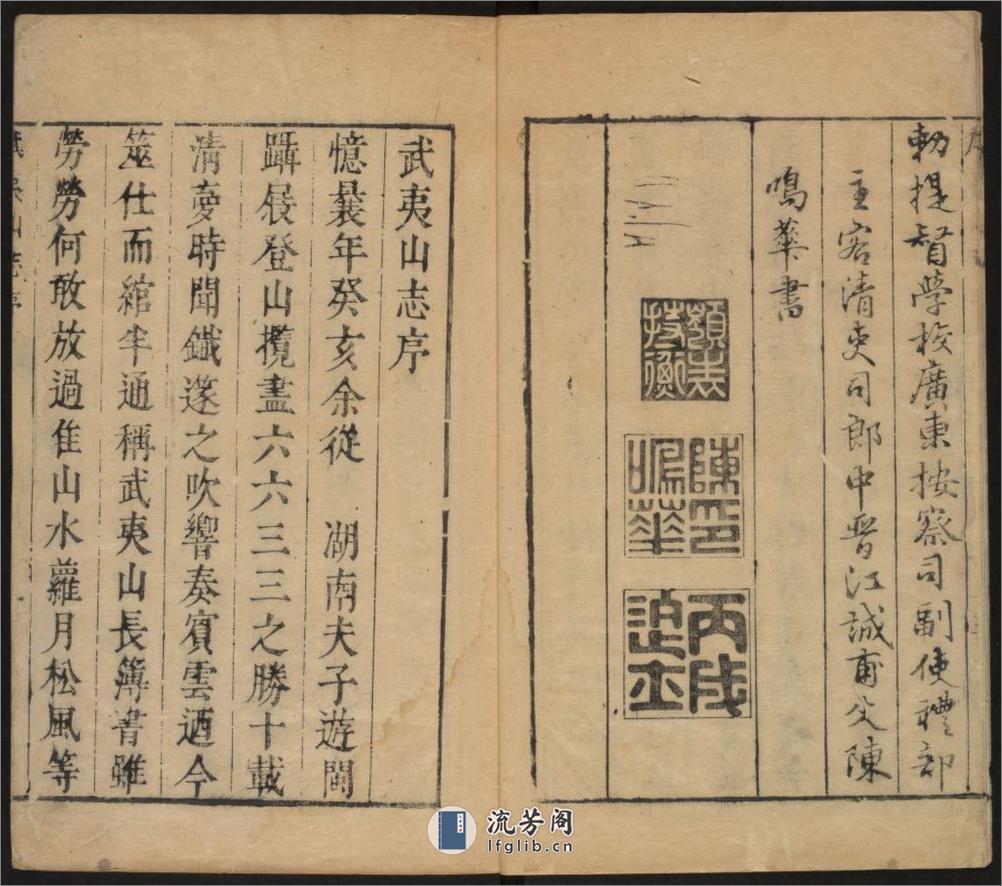 勅提督學校廣東按察司副使禮部
主客清吏司郎中晉江誠甫父陳
鳴華書
嶺表
持衡
陳印
鳴華
丙戌
武夷山志序
憶曩年癸亥余從 湖南夫子遊閩
躡屐登山攬盡六六三三之勝十載
清夢時聞鐵篴之吹響奏賓雲迺今
筮仕而綰半通稱武夷山長簿書雖
勞勞何敢放過隹山水蘿月松風等
流芳阁
lfglib.cn